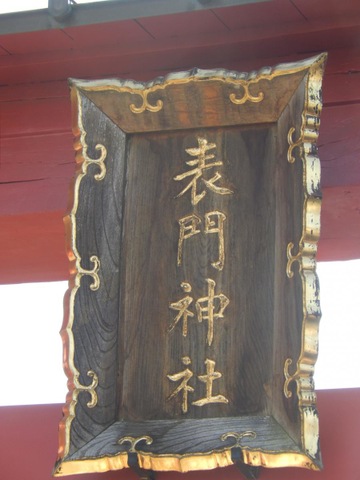 表門神社